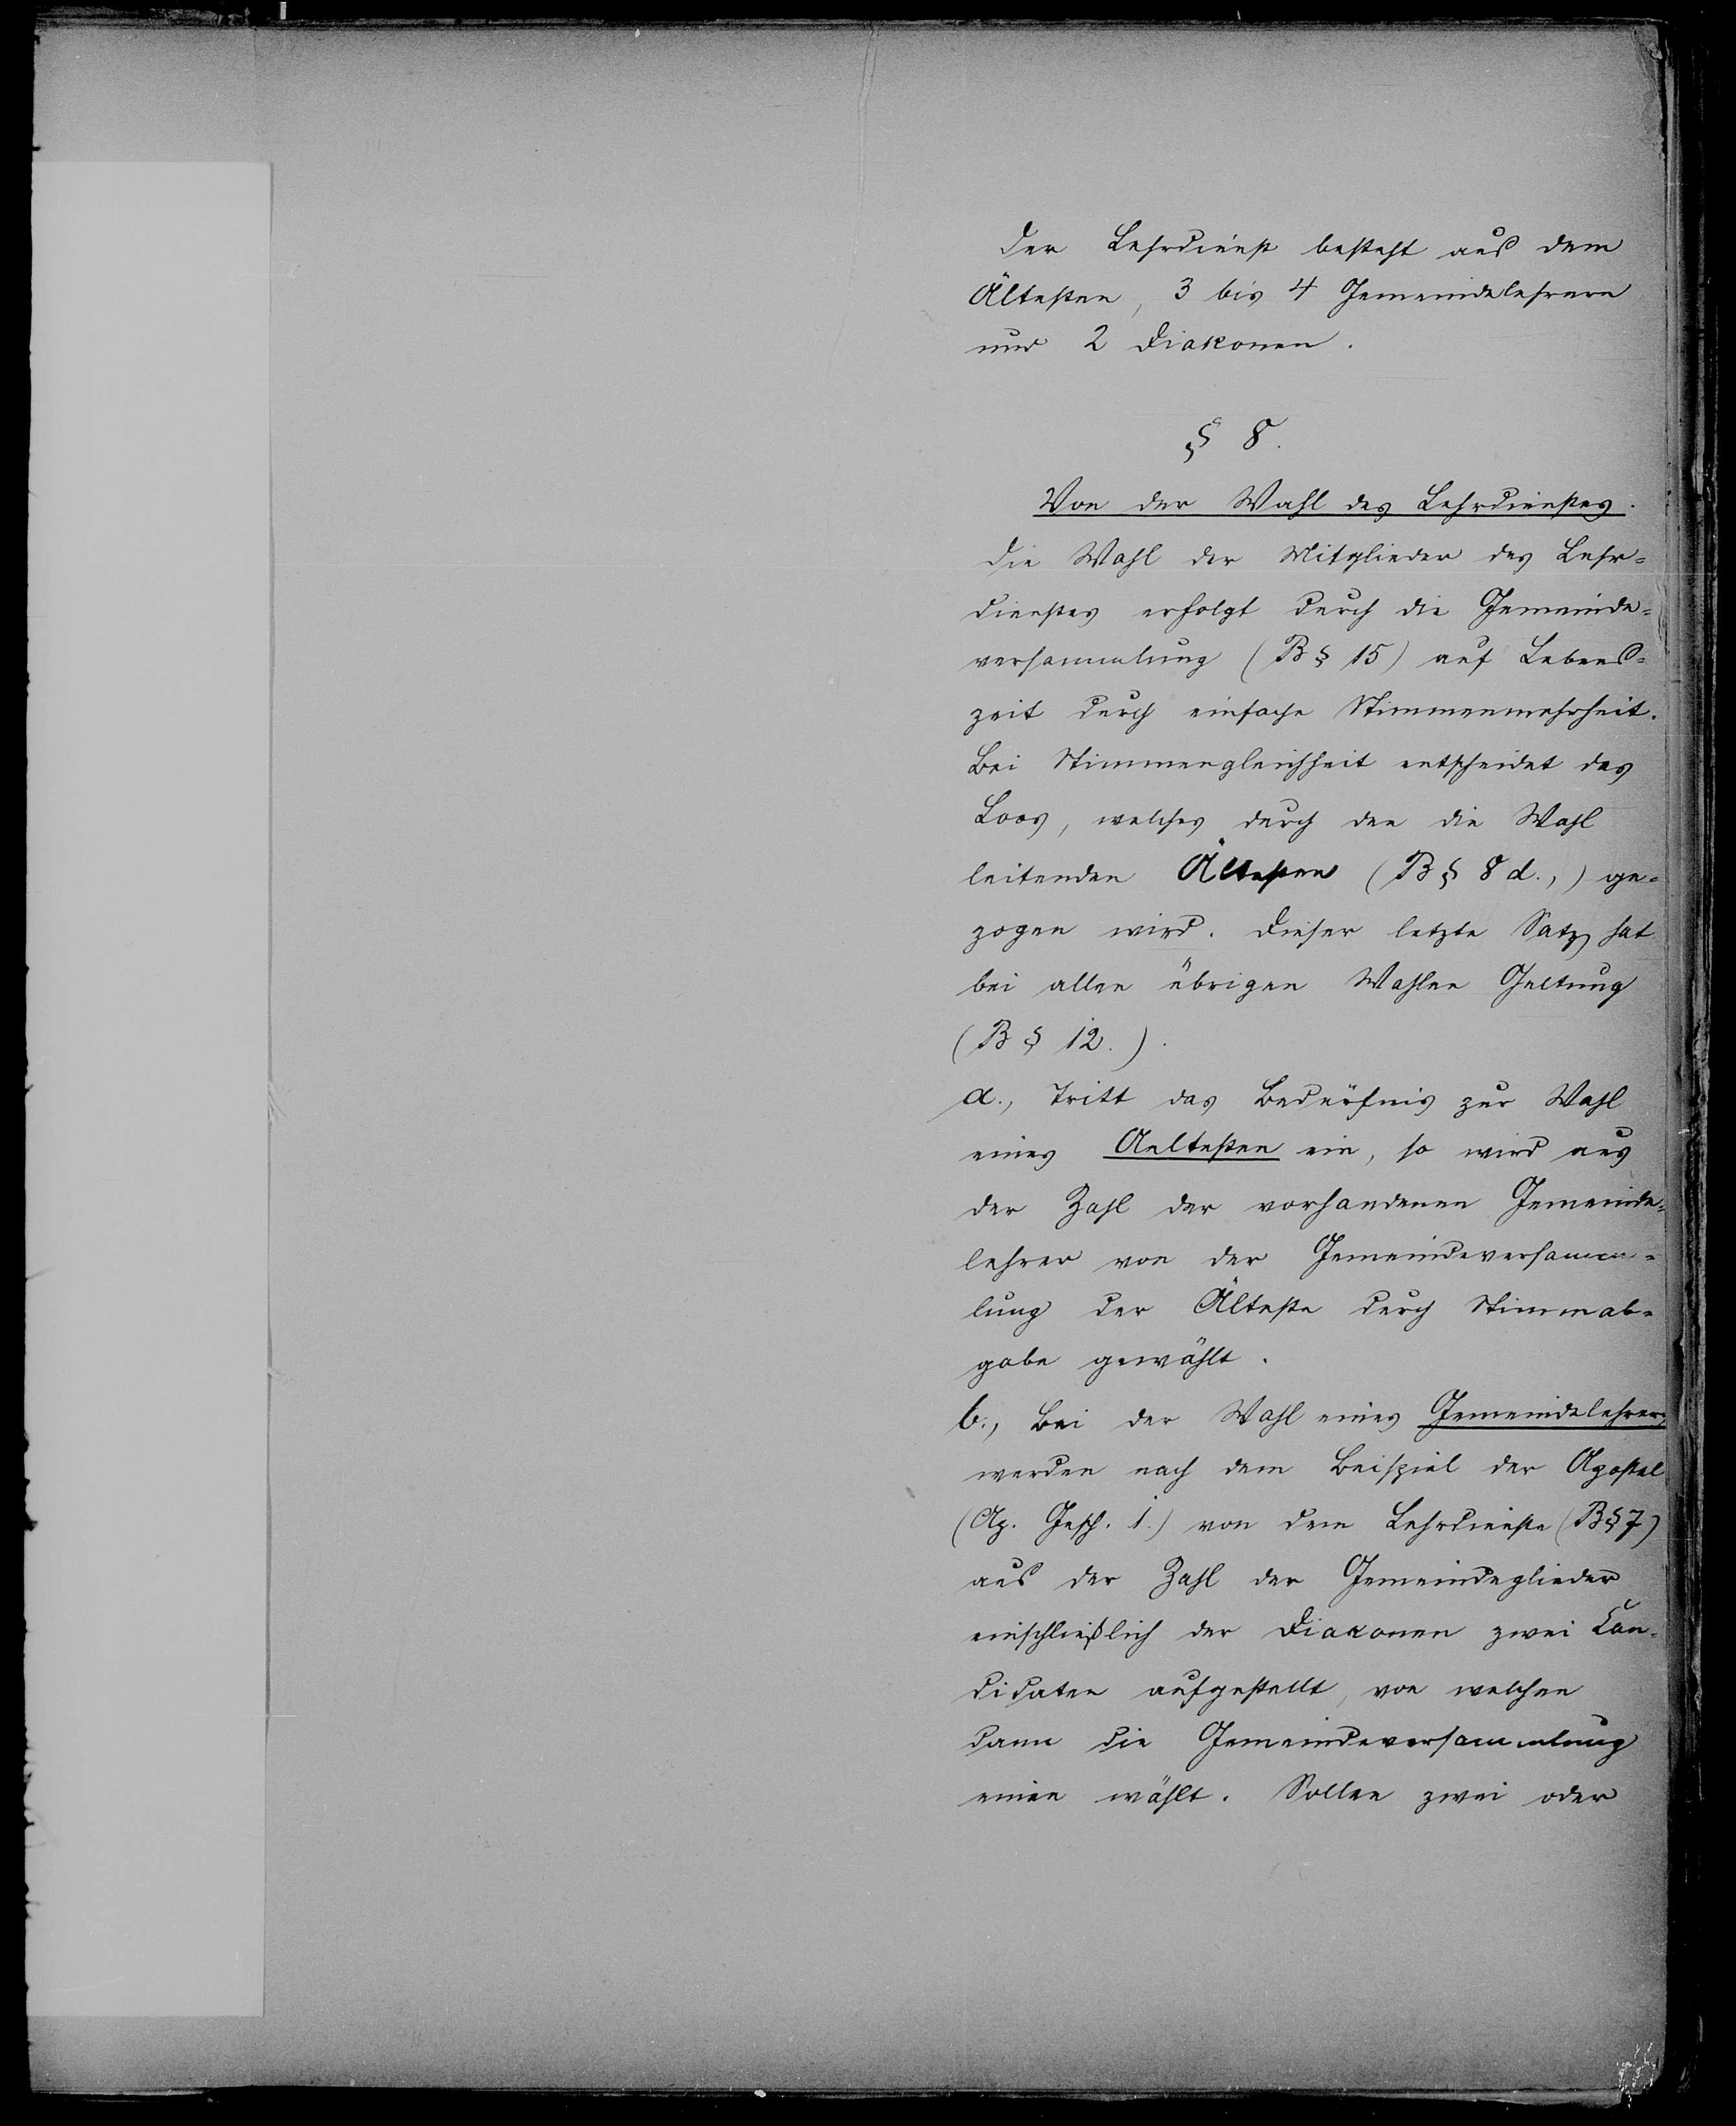 Der Lehrdienst besteht aus dem
Ältesten, 3 bis 4 Gemeindelehrern
und 2 Diakonen.
§ 8.
Von der Wahl des Lehrdienstes.
Die Wahl der Mitglieder des Lehr=
dienstes erfolgt durch die Gemeinde=
versammlung (B § 15) auf Lebens=
zeit durch einfache Stimmenmehrheit.
Bei Stimmengleichheit entscheidet das
Loos, welches durch den die Wahl
leitenden Ältesten (B § 8 d.,) ge=
zogen wird. Dieser letzte Satz hat
bei allen übrigen Wahlen Geltung
(B § 12.).
a., Tritt das Bedürfnis zur Wahl
eines Aeltesten ein, so wird aus
der Zahl der vorhandenen Gemeinde=
lehrer von der Gemeindeversamm=
lung der Älteste durch Stimmab=
gabe gewählt.
b., Bei der Wahl eines Gemeindelehrers
werden nach dem Beispiel der Apostel
(Ap. Gesch. 1.) von dem Lehrdienste (B § 7)
aus der Zahl der Gemeindeglieder
einschließlich der Diakonen zwei Can=
didaten aufgestellt, von welchen
dann die Gemeindeversammlung
einen wählt. Sollen zwei oder